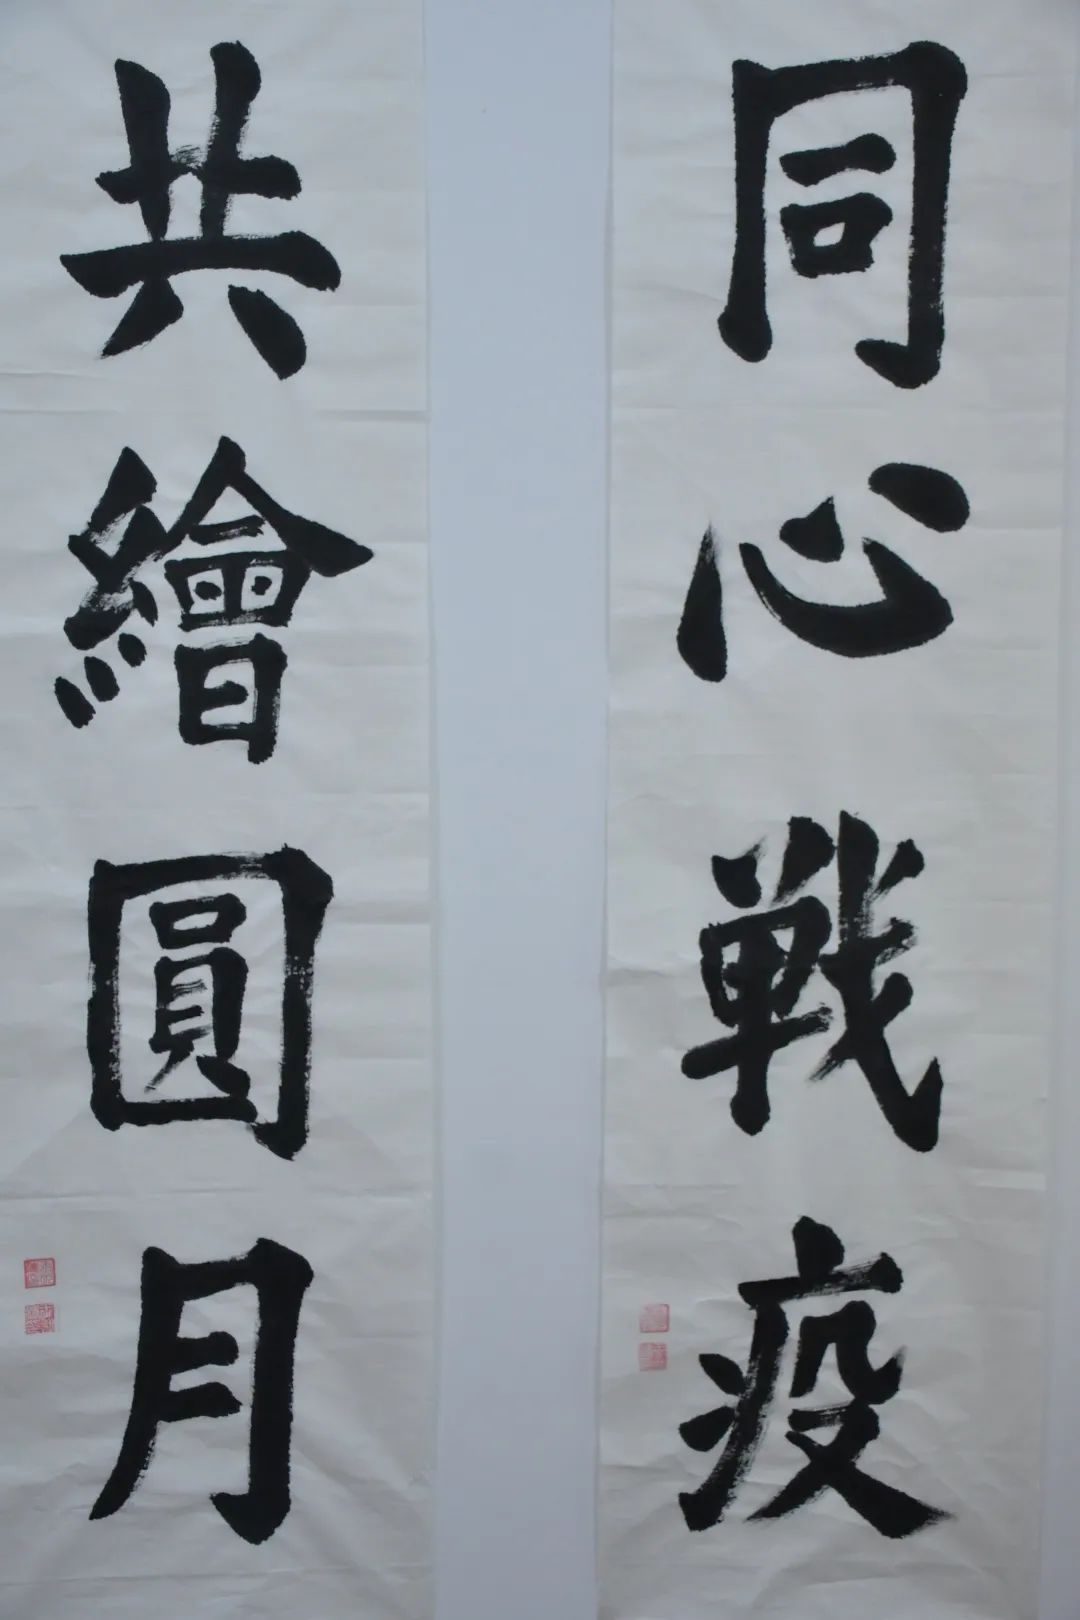 同心戦疫
共繪圓月